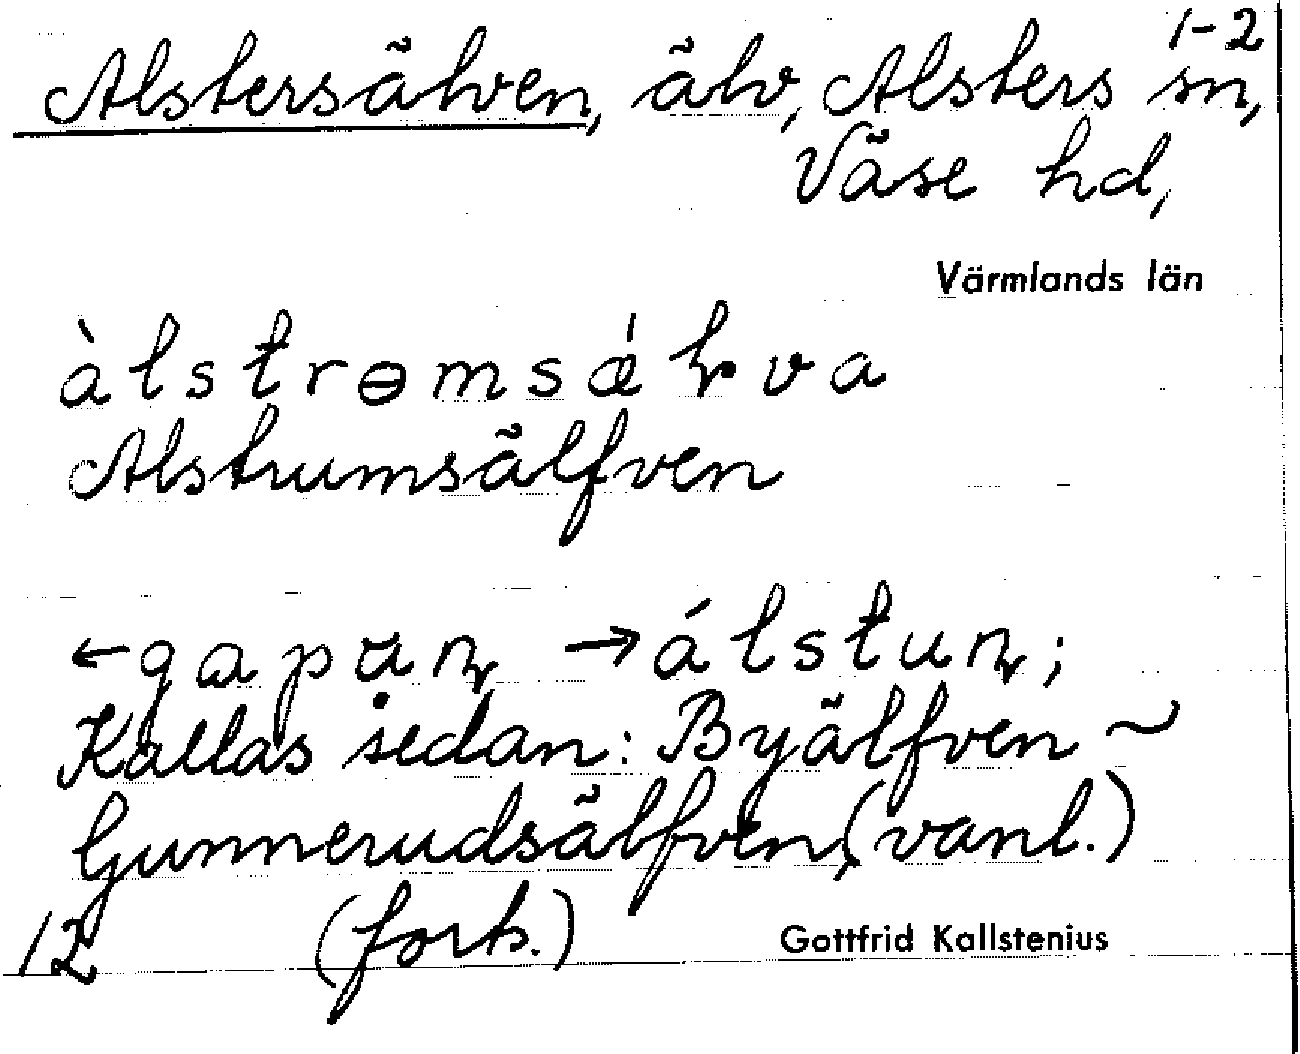 1-2
Alstersälven, älv, Alsters sn,
Väse hd,
Värmlands län
àlstrəmsǽlva
Alstrumsälfven
← gapan → álstun;
Kallas sedan: Byälfven ~
Gunnerudsälfven, (vanl.)
12 (fork.) Gottfrid Kallstenius